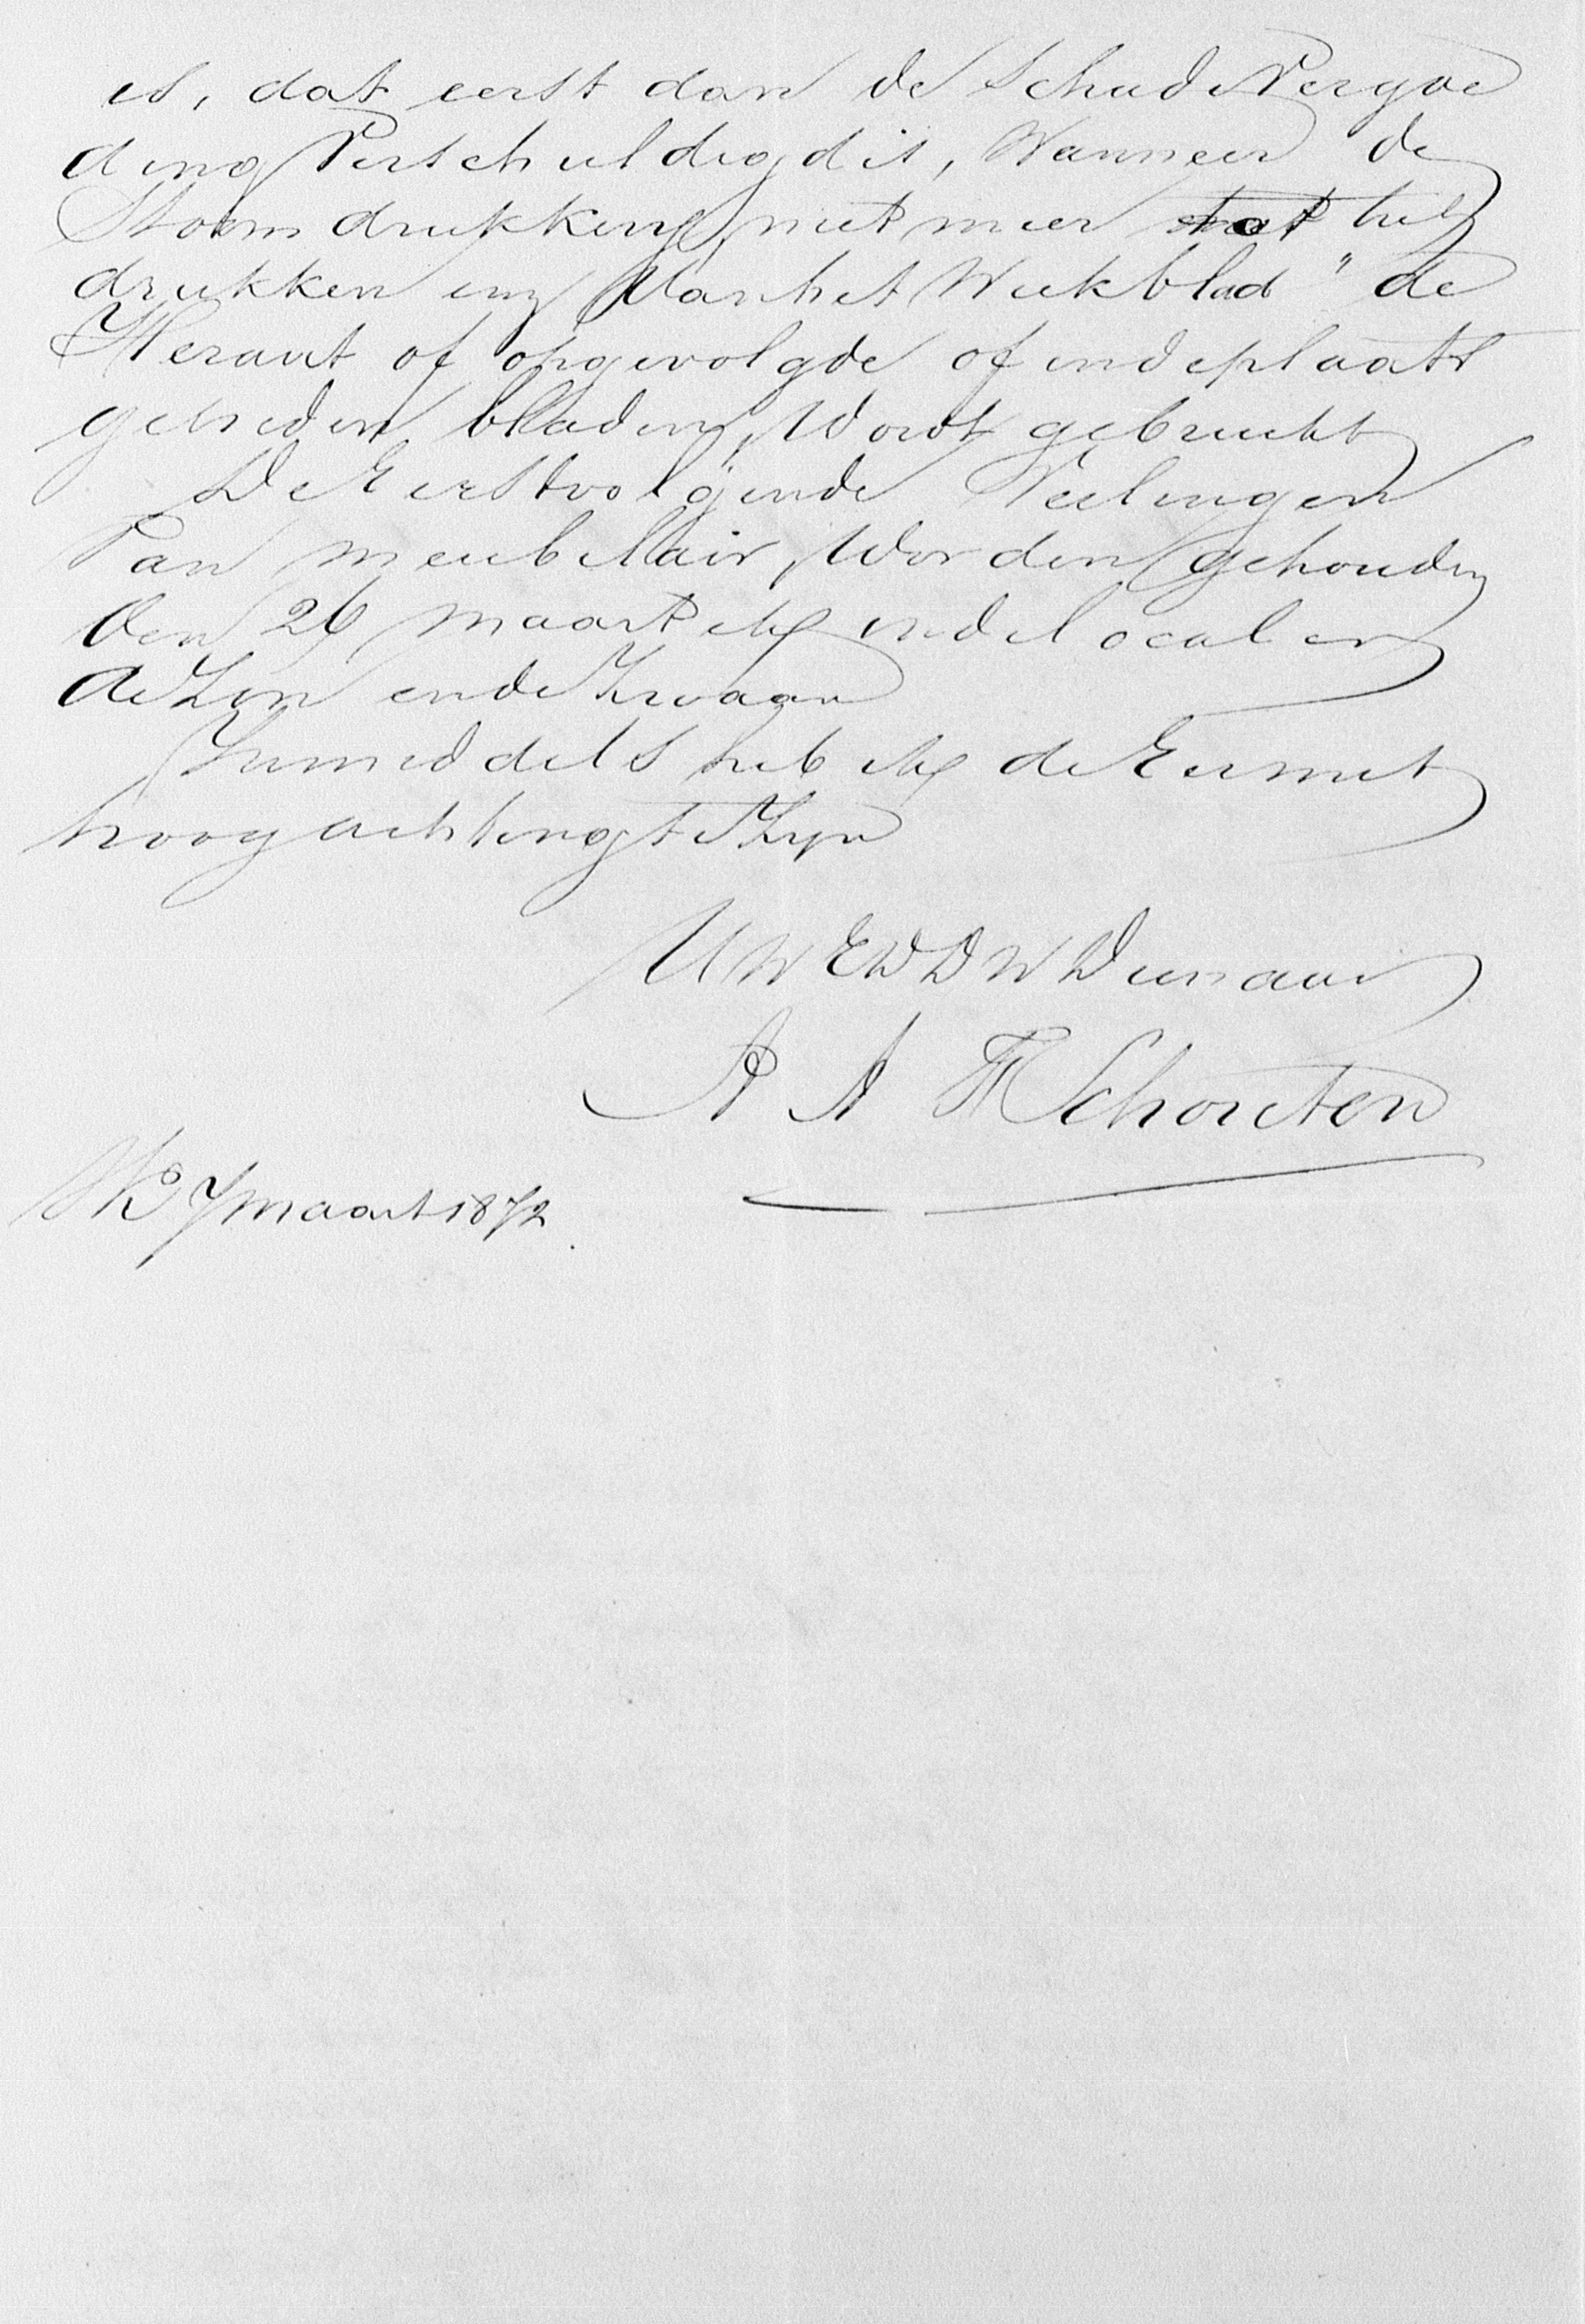 is, dat eerst dan de Schadevergoe
ding verschuldigd is, Wanneer de
Stoomdrukking niet meer tot het
drukken enz van het Weekblad "de
Heraut of opgevolgde of in de plaats
getreden bladen, Wordt gebruikt
De Eerstvolgende Veelingen
van meubilair, Worden gehouden
den 26 maart elk in de localen
de Zon en de Zwaan
Inmiddels heb ik de Eer met
hoogachting te Zyn
UWEDDWDienaar
A A F Schouten
7 maart 1872.